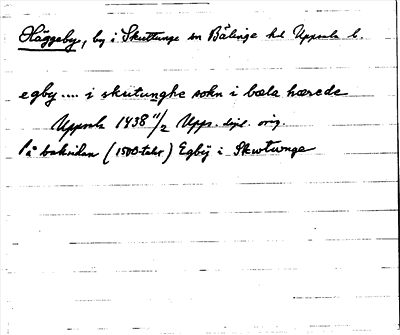 Häggeby, by i Skuttunge sn Bälinge hd Uppsala l.
egby.... i skutunghe sokn i bæla hærede
Uppsala 1438 11/2 Upps. dipl. orig.
På baksidan (1500-talet) Egby i Skutunge